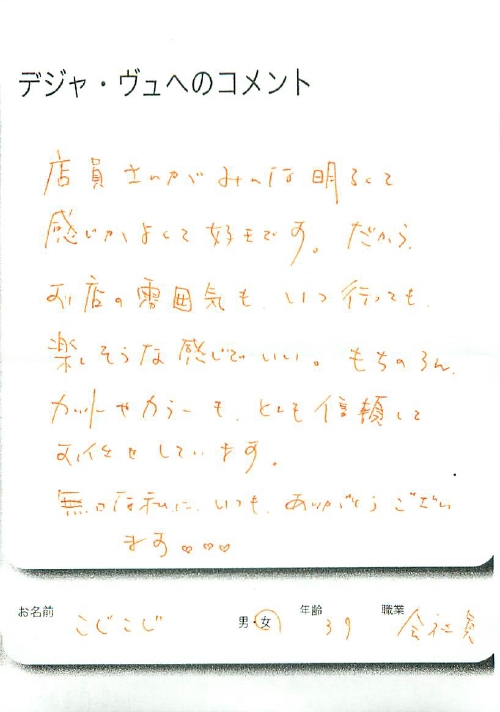 デジャ・ヴュへのコメント
店員さんがみんな明るくて
感じがよくて好きです。だから、
お店の雰囲気も、いつ行っても、
楽しそうな感じでいい。もちのろん、
カットやカラーも、とても信頼して
お任せしています。
無口な私に、いつも、ありがとうござい
ます♡♡♡
お名前 こじこじ 男・女 年齢 39 職業 会社員